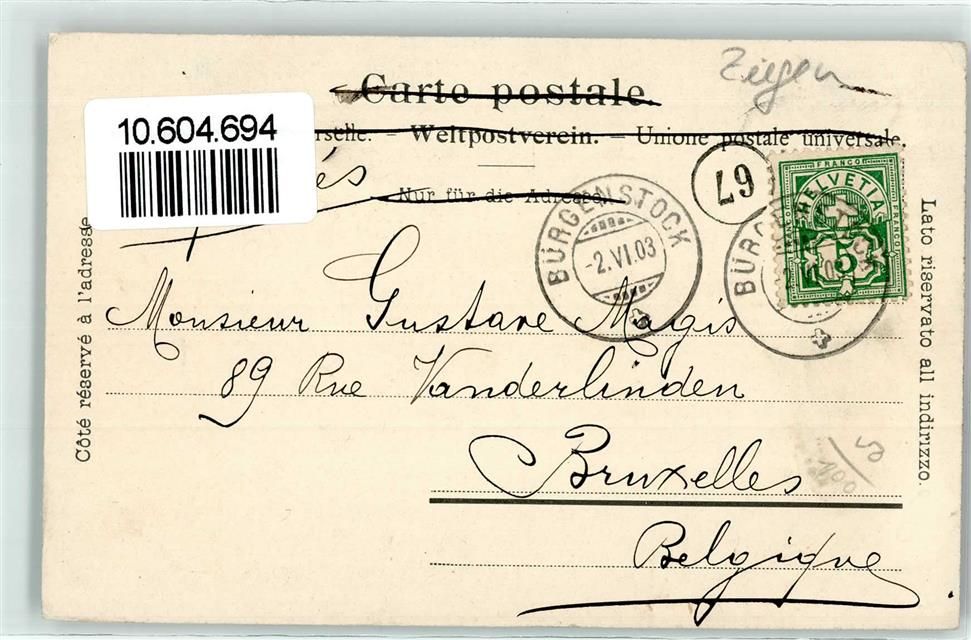 Ziegen
Carte postale.
10.604.694
erselle. — Weltpostverein. — Unione postale universale.
Nur für die Adresse.
67
BÜRGENSTOCK
-2.VI.03
FRANCO
HELVETIA
FRANCO
FRANCO
5
BÜRG
Côté réservé à l'adresse
Lato riservato all indirizzo.
Monsieur Gustave Magis
89 Rue Vanderlinden
Bruxelles
Belgique
100